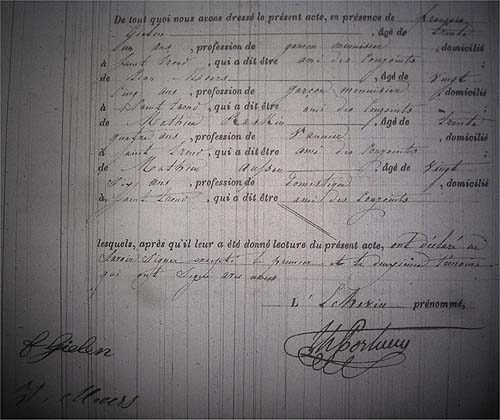 De tout quoi nous avons dressé le présent acte, en présence de françois
Gielen , âgé de trente
un ans , profession de garçon menuisier , domicilié
à Saint Trond , qui a dit être ami des conjoints ;
de Jean Miers , âgé de vingt
cinq ans , profession de garçon menuisier , domicilié
à Saint Trond , qui a dit être ami des conjoints ;
de Mathieu Raskin , âgé de trente
quatre ans , profession de vannier , domicilié
à Saint Trond , qui a dit être ami des conjoints ;
de Mathieu , âgé de vingt
six ans , profession de domestique , domicilié
à Saint Trond , qui a dit être ami des conjoints
lesquels, après qu'il leur a été donné lecture du présent acte, ont déclaré ne
savoir signer excepté le premier et le deuxième témoins
qui ont signé avec nous
L' Echevin prénommé,
f Gielen
J. Miers